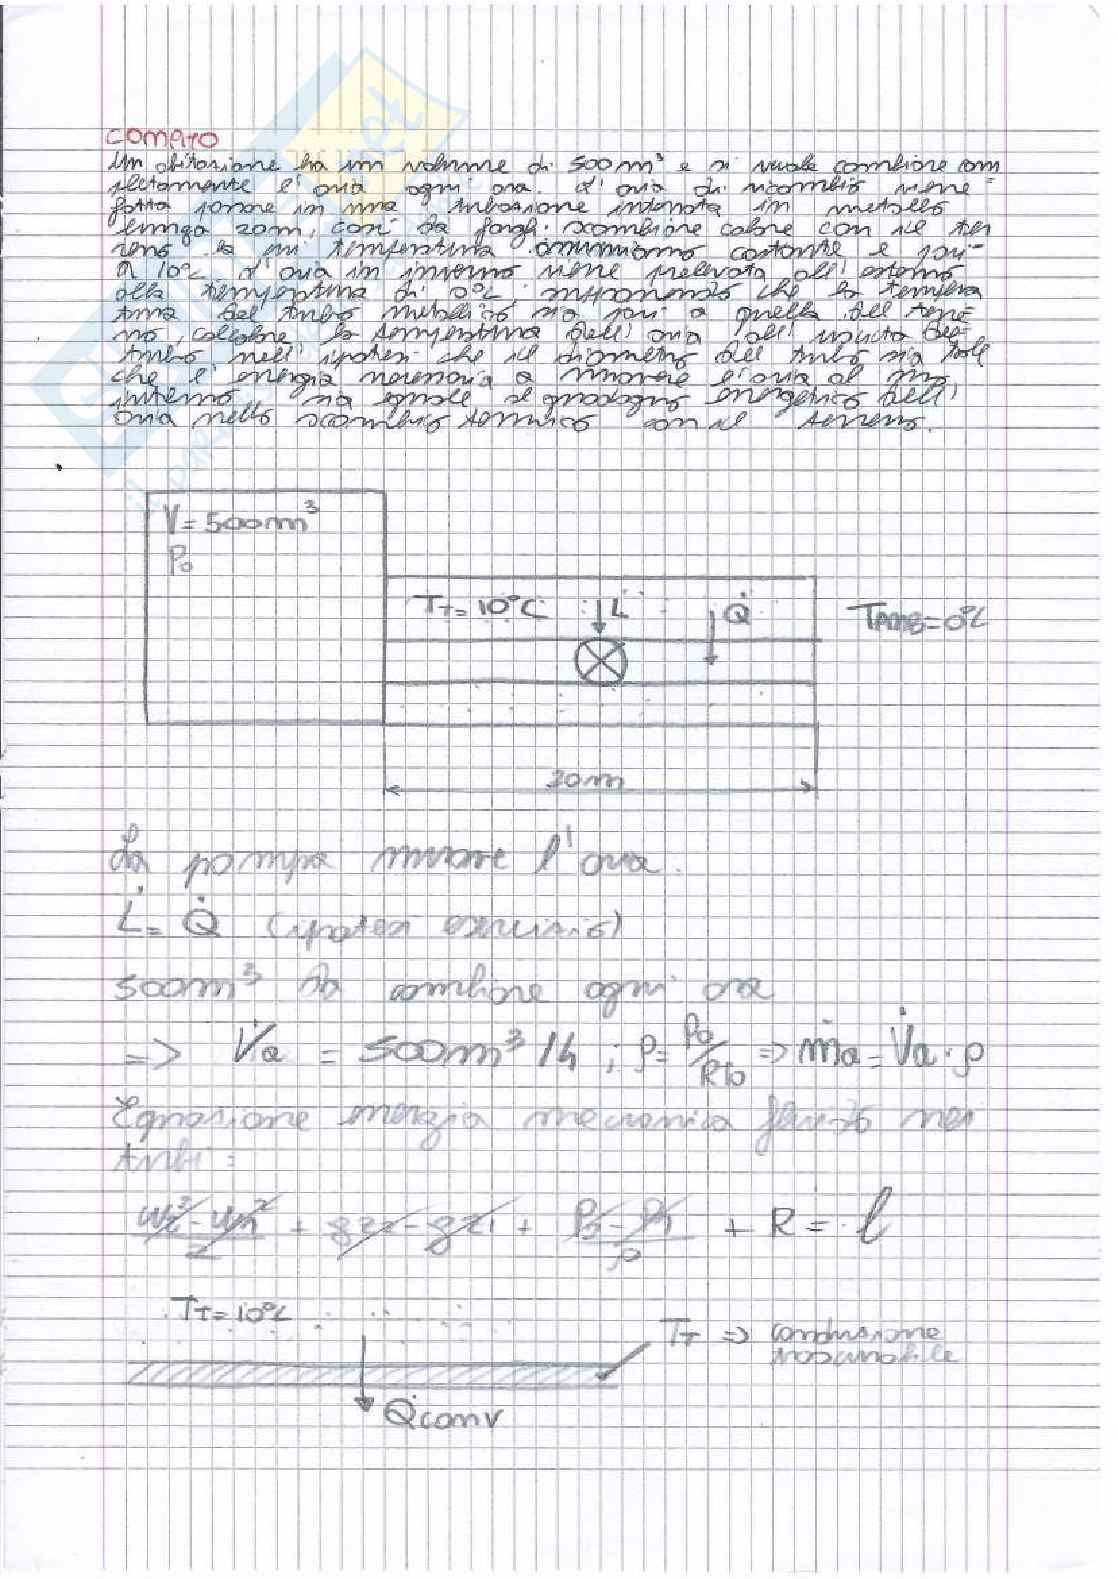 COMPITO
Un abitazione ha un volume di 500 m³ e si vuole cambiare com
pletamente l'aria ogni ora. L'aria di ricambio viene
fatta passare in una tubazione interrata in metallo
lunga 20m, così da fargli scambiare calore con il ter
reno la cui temperatura assumiamo costante e pari
a 10°C. L'aria in inverno viene prelevata all'esterno
alla temperatura di 0°C, supponendo che la tempera
tura del tubo metallico sia pari a quella del terre
no, calcolare la temperatura dell'aria all'uscita del
tubo nell'ipotesi che il diametro del tubo sia tale
che l'energia necessaria a muovere l'aria al suo
interno sia uguale al guadagno energetico dell'
aria nello scambio termico con il terreno.
V = 500m³
P₀
Tt = 10°C
L
Q̇
TAMB = 0°C
20m
La pompa muove l'aria.
L̇ = Q̇ (ipotesi esercizio)
500m³ da cambiare ogni ora
=> V̇a = 500m³/h ; ρ = P₀/RT₀ => ṁa = V̇a · ρ
Equazione energia meccanica fluido nei
tubi:
w₂² - w₁²/2 + gz₂ - gz₁ + P₂ - P₁/ρ + R = l
Tt = 10°C
TT => conduzione
trascurabile
Q̇conv